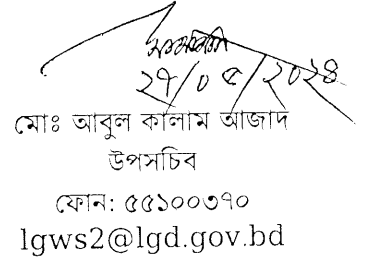 ২৭/০৫/২০২৪
মোঃ আবুল কালাম আজাদ
উপসচিব
ফোন: ৫৫১০০৩৭০
lgws2@lgd.gov.bd